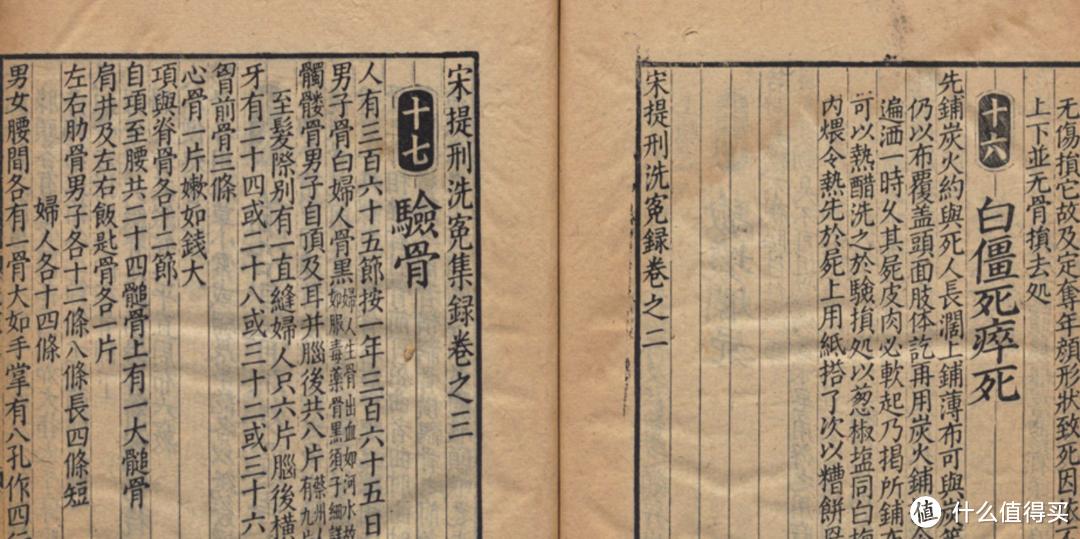 无傷損它故及定奪年顔形狀致死因依
上下並无骨損去処
十六 白僵死瘁死
先鋪炭火約與死人長濶上鋪薄布可與炭
仍以布覆盖頭面肢体訖再用炭火鋪
遍洒一時久其屍皮肉必軟起乃揭所鋪布
可以熱醋洗之於驗損処以葱椒塩同白梅
内煨令熱先於屍上用紙搭了次以糟餅
宋提刑洗冤録卷之二
宋提刑洗冤集録卷之三
十七 驗骨
人有三百六十五節按一年三百六十五日
男子骨白婦人骨黑婦人生骨出血如河水故如服毒藥骨黑須子細詳
髑髏骨男子自頂及耳并腦後共八片蔡州人有九片
至髮際別有一直縫婦人只六片腦後橫
牙有二十四或二十八或三十二或三十六
胷前骨三條
心骨一片嫩如錢大
項與脊骨各十二節
自項至腰共二十四髓骨上有一大髓骨
肩井及左右飯匙骨各一片
左右肋骨男子各十二條八條長四條短
婦人各十四條
男女腰間各有一骨大如手掌有八孔作四行
值 什么值得买